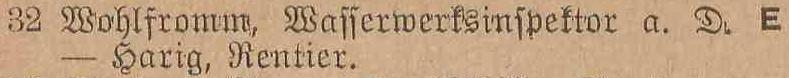 32 Wohlfromm, Wasserwerksinspektor a. D. E
— Harig, Rentier.